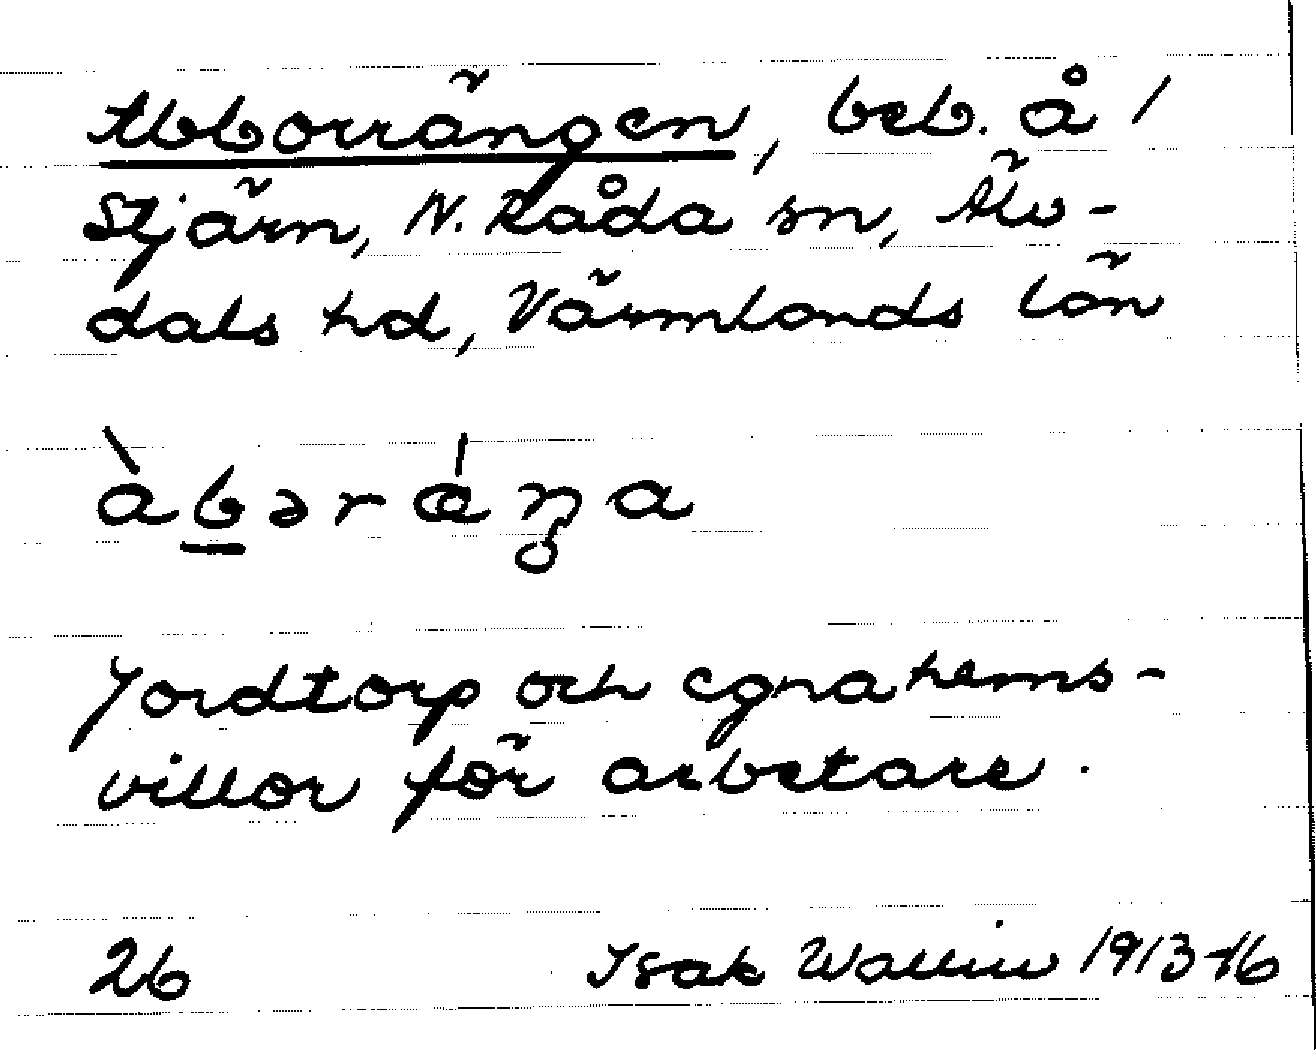 Abborrängen, beb. å 1
Stjärn, N. Råda sn, Älv-
dals hd, Värmlands län
àb̲ərǽŋa
Jordtorp och egnahems-
villor för arbetare.
26 Isak Wallin 1913-16